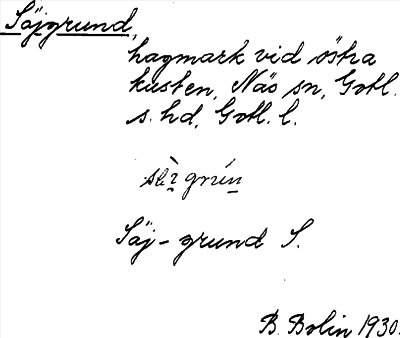 Söjgrund,
hagmark vid östra
kusten, Näs sn, Gotl.
s. hd, Gotl. l.
Söj-grund S.
B. Bolin 1930.